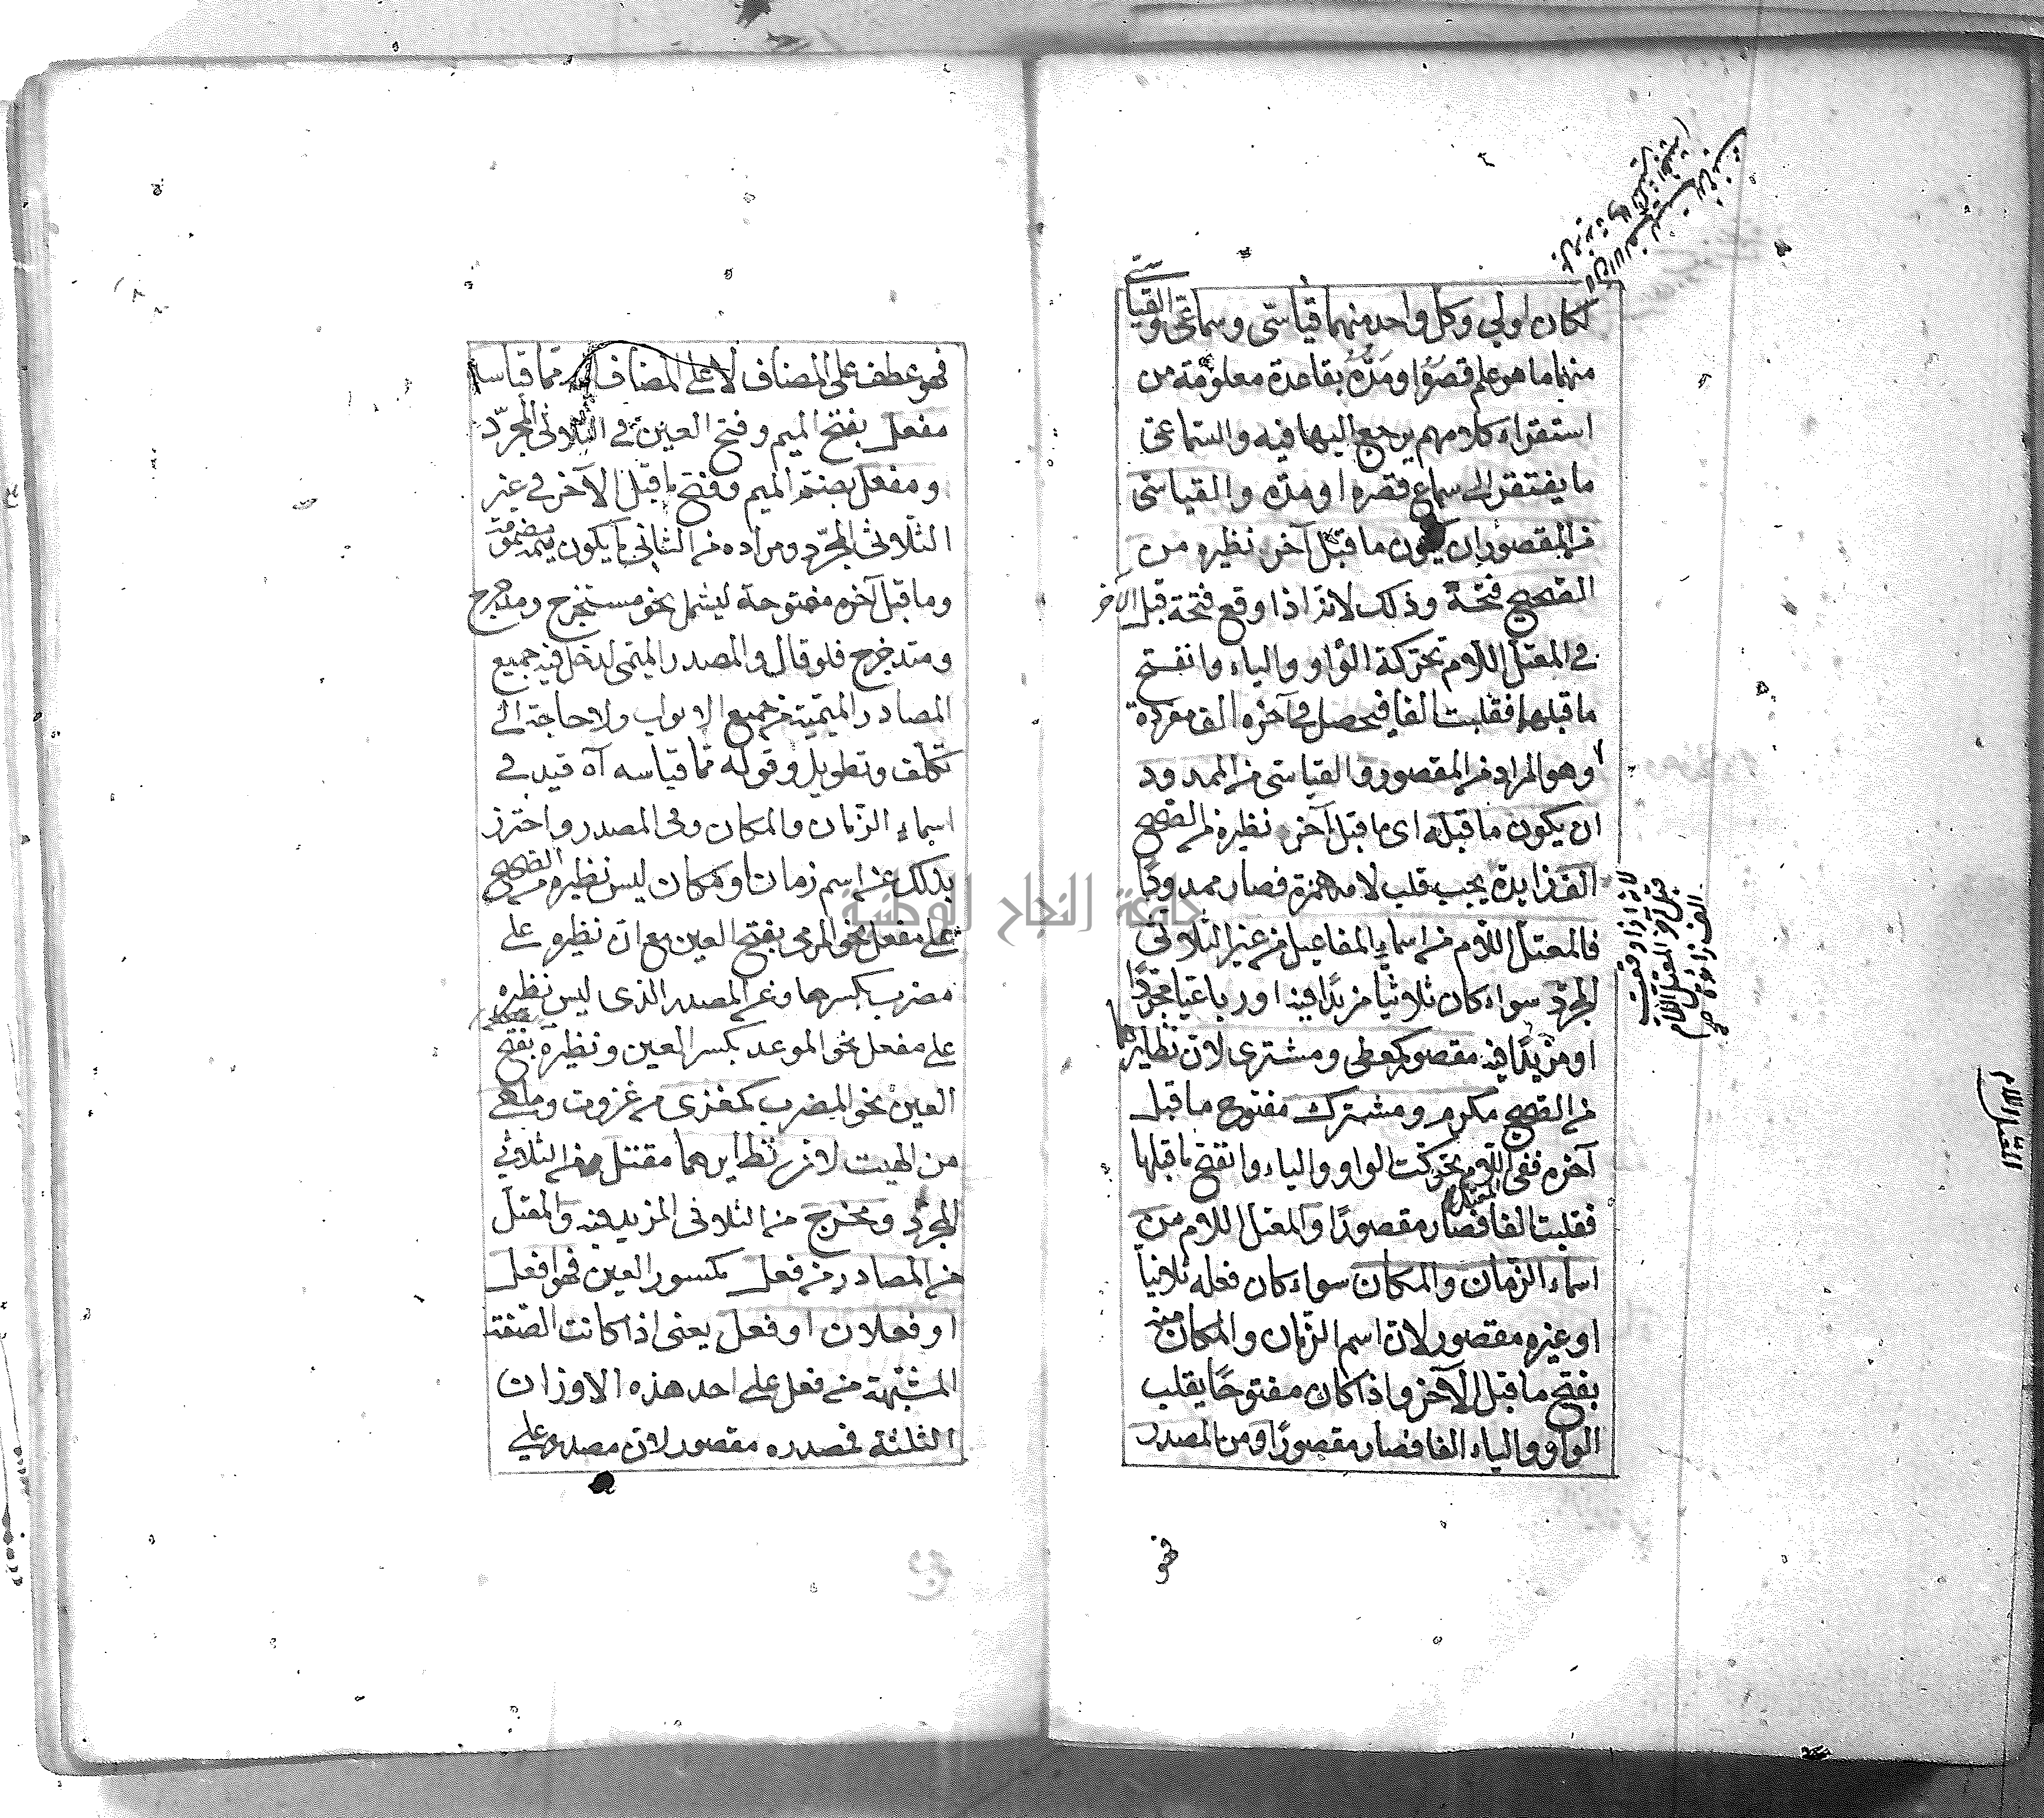 لكان اولى وكل واحد منهما قياسّى وسماعّى والقياسى
منهما ما هو علم قصرُه اومَدُّهُ بقاعدة معلومة من
استقراء كلامهم يرجع اليها فيه والسّماعى
ما يفتقر الى سماع قصره او مدّه والقياسّى
من المقصور ان يكون ما قبل آخر نظيره من
الصّحيح فتحة وذلك لانّه اذا وقع فتحة قبل الآخر
فى المعتلّ اللّام تحرّكة الواو والياء وانفتح
ما قبلهما فقلبت الفا فيحصل فى آخره الف مفردة
وهو المراد من المقصور والقياسّى من الممدود
ان يكون ما قبله اى ما قبل آخر نظيره من الصّحيح
الف زايدة يجب قلب لامه همزة فصار ممدودًا
فالمعتلّ اللّام من اسماء المفاعيل من غير الثّلاثّى
المجرّد سواء كان ثلاثيًّا مزيدًا فيه او رباعيًا مجرّدًا
او مزيدًا فيه مقصور كمعطى ومشترى لانّ نظايرهما
من الصّحيح مكرم ومشترك مفتوح ما قبل
آخره ففى اللّام تحرّكت الواو والياء وانفتح ما قبلها
فقلبت الفا فصار مقصورًا والمعتلّ اللام من
اسماء الزّمان والمكان سواء كان فعله ثلاثيا
او غيره مقصور لانّ اسم الزّمان والمكان منه
بفتح ما قبل الآخر واذا كان مفتوحًا يقلب
الواو والياء الفا فصار مقصورًا ومن المصدر
فهو
لانه اذا وقعت
قبل آخر المعتل اللام
الف زائدة صح
المعتل اللام
فهو عطف على المضاف لا على المضاف ممّا قياسه
مفعل بفتح الميم وفتح العين فى الثّلاثى المجرّد
ومفعل بضمّ الميم وفتح ما قبل الآخر فى غير
الثّلاثى المجرّد ومراده من الثانى ما يكون ميمه مضمومة
وما قبل آخره مفتوحة ليشمل نحو مستخرج ومدحرج
ومتدحرج فلو قال والمصدر الميمّى لدخل فيه جميع
المصادر الميميّة من جميع الابواب ولا حاجة الى
تكلّف وتطويل وقوله ممّا قياسه آه قيد فى
اسماء الزّمان والمكان وفى المصدر واحترز
بذلك عن اسم زمان او مكان ليس نظيره من الصّحيح
على مفعل نحو المرمى بفتح العين مع انّ نظيره على
مضرب بكسرها وعن المصدر الذى ليس نظيره
على مفعل نحو الموعد بكسر العين ونظيره بفتح
العين نحو المضرب كمغزى من غزوت وملهى
من الهيت لانّ نظايرهما مقتل من الثّلاثى
المجرّد ومخرج من الثلاثى المزيد فيه والمعتلّ
من المصادر من فعل مكسور العين فهو افعل
او فعلان او فعل يعنى اذا كانت الصّفة
المشبّهة من فعل على احد هذه الاوزان
الثلثة فمصدره مقصور لانّ مصدره على
جامعة النجاح الوطنية